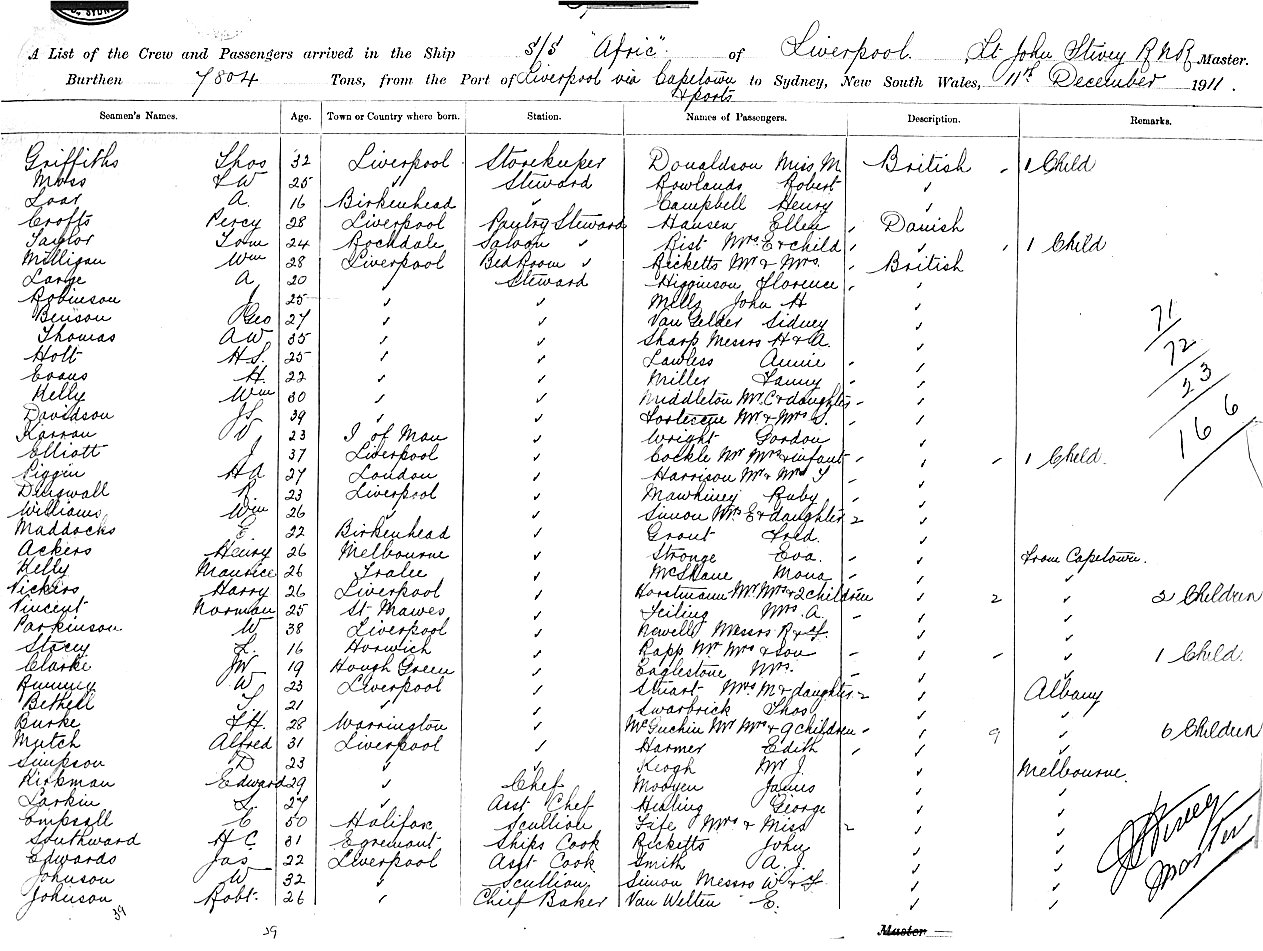 SYDN
A List of the Crew and Passengers arrived in the Ship S/S "Afric" of Liverpool. Lt John Stivey RNR Master.
Burthen 7804 Tons, from the Port of Liverpool via Capetown & ports to Sydney, New South Wales, 11th December 1911.
Seamen's Names. Age. Town or Country where born. Station. Names of Passengers. Description. Remarks.
Griffiths Thos 32 Liverpool Storekeeper Donaldson Miss M British - 1 Child
Moss 25 " Steward Rowlands Robert "
A. 16 Birkenhead " Campbell Henry "
Crofts Percy 28 Liverpool Pantry Steward Hansen Ellen Danish
Taylor Tom 24 Rochdale Saloon " Rist Mrs E & child " 1 Child
Milligan Wm 28 Liverpool Bed Room " Ricketts Mr & Mrs. British
Large A 20 " Steward Higginson Florence "
Robinson J 25 " " Mills John H "
Benson Geo 27 " " Van Gelder Sidney "
Thomas AW 35 " " Sharp Messrs H & A. "
Holt HS. 25 " " Lawless Annie "
Evans H. 22 " " Miller Fanny "
Kelly Wm 30 " " Middleton Mr C & daughter "
Davidson JS 39 " " Fortescue Mr & Mrs S. "
Karran W 23 I of Man " Wright Gordon "
Elliott J 37 Liverpool " Cockle Mr Mrs & infant " - 1 Child.
Piggin HA 27 London " Harrison Mr & Mrs T "
Dingwall R 23 Liverpool " Mawhiney Ruby "
Williams Wm 26 " " Simon Mrs E & daughter 2 "
Maddocks E 22 Birkenhead " Grout Fred. "
Ackers Henry 26 Melbourne " Stronge Eva. " from Capetown.
Kelly Maurice 26 Tralee " McShane Mona " "
Vickers Harry 26 Liverpool " Horstmann Mr Mrs & 2 children " 2 " 2 Children
Vincent Norman 25 St Mawes " Teiling Mrs. A. " "
Parkinson W 38 Liverpool " Newell Messrs R & F. " "
Stacey L. 16 Horwich " Rapp Mr Mrs & son " - " 1 Child.
Clarke JW 19 Hough Green " Englestone Mrs. " "
Rumney W 23 Liverpool " Stuart Mrs M & daughter 2 " Albany
Bethell T 21 " " Swarbrick Thos " "
Burke FH. 28 Warrington " McGuchin Mr Mrs & 9 children " 9 " 6 Children
Mutch Alfred 31 Liverpool " Harmer Edith " "
Simpson D 23 " " Keogh Mr J. " Melbourne.
Kirkman Edward 29 " Chef Mooyen James " "
Larkin L. 27 " Asst Chef Healing George " "
Empsall C 50 Halifax Scullion Fife Mrs & Miss 2 " "
Southward H C. 31 Egremont Ships Cook Ricketts John " "
Edwards Jas 22 Liverpool Asst Cook Smith A. J. " "
Johnson W 32 " Scullion Simon Messrs W & F. " "
Johnson Robt. 26 " Chief Baker Van Welten E. " "
71
72
23
166
J Stivey
Master
39
39
Master